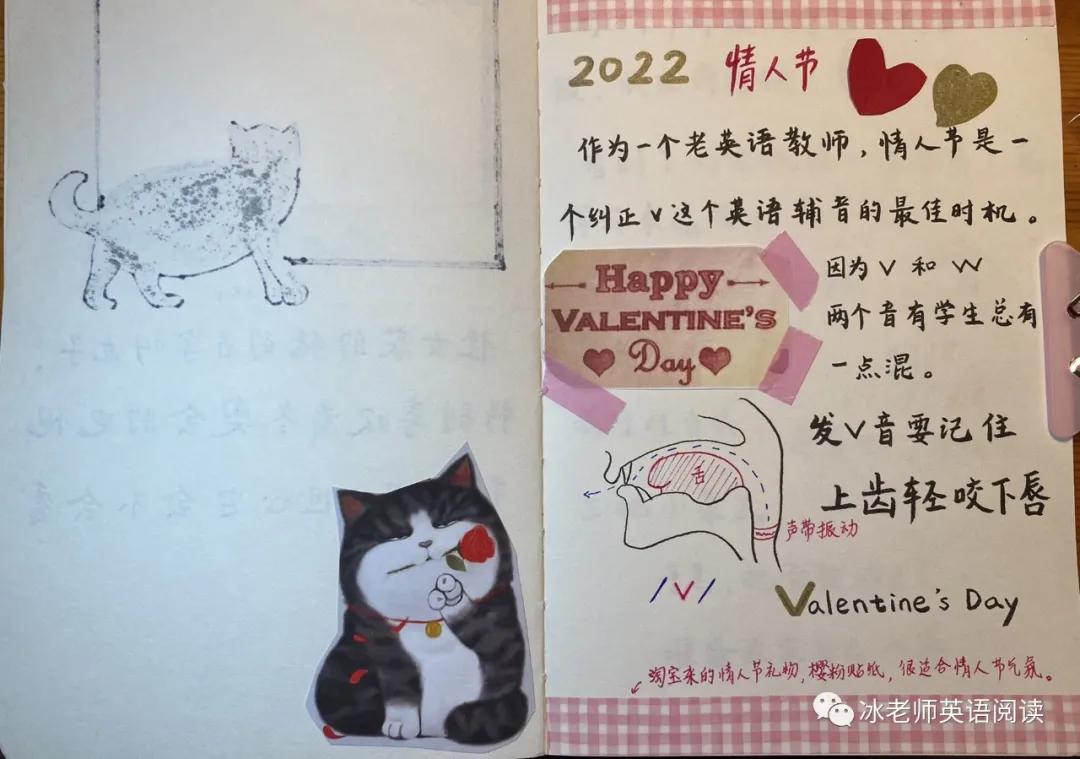 2022 情人节
作为一个老英语教师，情人节是一
个纠正V这个英语辅音的最佳时机。
Happy
VALENTINE'S
Day
因为V和W
两个音有学生总有
一点混。
发V音要记住
上齿轻咬下唇
舌
声带振动
/V/
Valentine's Day
淘宝来的情人节礼物，樱粉贴纸，很适合情人节气氛。
冰老师英语阅读